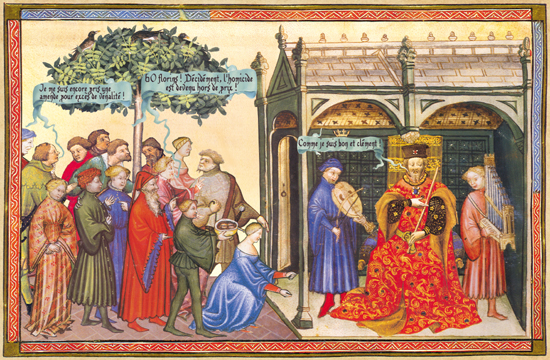 Je me suis encore pris une
amende pour excès de vénalité !
60 florins ! Décidément, l'homicide
est devenu hors de prix !
Comme je suis bon et clément !